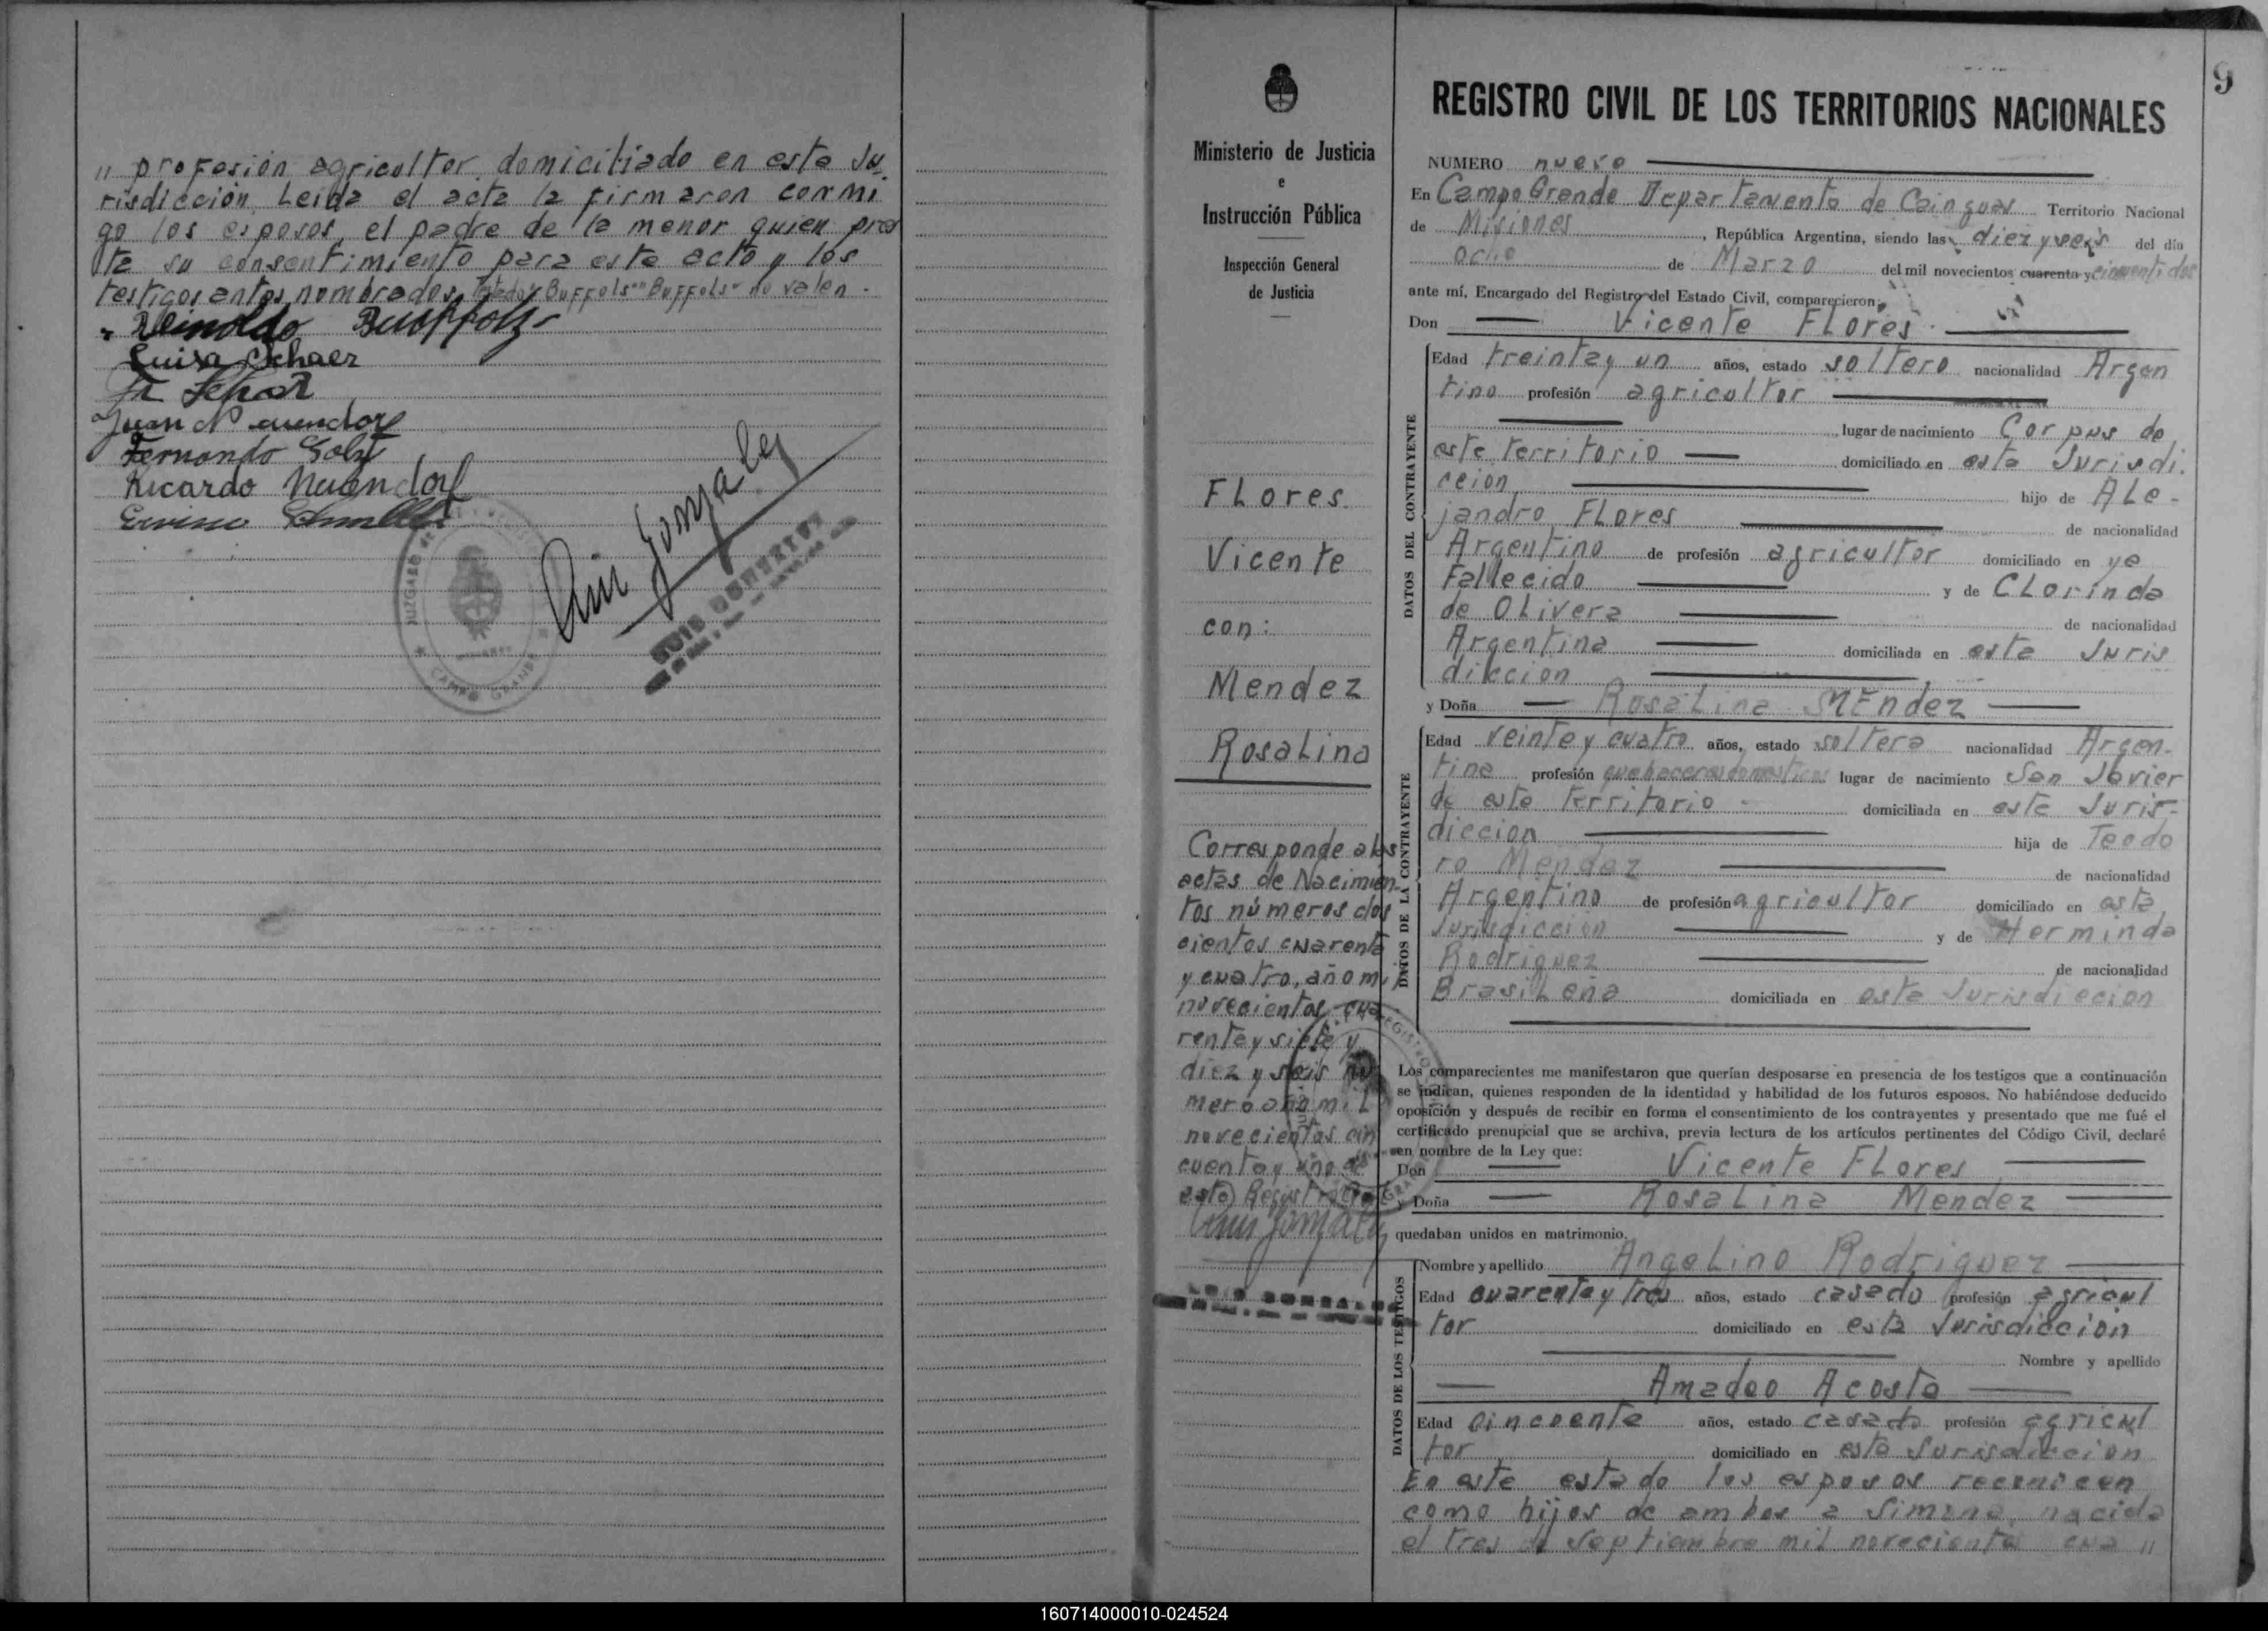 " profesión agricultor domiciliado en esta Ju-
risdicción. Leida el acta la firmaron conmi
go los esposos, el padre de la menor quien pres
ta su consentimiento para este acto y los
testigos antes nombrados. Testado "Buffols" "Buffols" no valen.-
Luisa Schaer
Juan
Fernando
Ricardo
JUZGADO DE
CAMPO GRANDE
Luis Gonzalez
LUIS GONZALEZ
Ministerio de Justicia
e
Instrucción Pública
Inspección General
de Justicia
Flores
Vicente
con:
Mendez
Rosalina
Corresponde a las
actas de Nacimien-
tos números dos
cientos cuarenta
y cuatro, año mil
novecientos cua
renta y siete y
diez y seis nu
mero año mil
novecientos cin
cuenta y uno de
este Registro
Luis Gonzalez
9
REGISTRO CIVIL DE LOS TERRITORIOS NACIONALES
NUMERO nueve
En Campo Grande Departamento de Cainguas Territorio Nacional
de Misiones, República Argentina, siendo las diez y seis del día
ocho de Marzo del mil novecientos cuarenta y cincuenti dos
ante mí, Encargado del Registro del Estado Civil, comparecieron:
Don Vicente Flores
DATOS DEL CONTRAYENTE
Edad treinta y un años, estado soltero nacionalidad Argen
tino profesión agricultor
lugar de nacimiento Corpus de
este territorio domiciliado en esta Jurisdi.
ccion hijo de Ale-
jandro Flores de nacionalidad
Argentino de profesión agricultor domiciliado en ya
Fallecido y de Clorinda
de Olivera de nacionalidad
Argentina domiciliada en esta Juris
diccion
y Doña Rosalina Méndez
DATOS DE LA CONTRAYENTE
Edad veinte y cuatro años, estado soltera nacionalidad Argen-
tina profesión quehaceres domesticos lugar de nacimiento San Javier
de este territorio domiciliada en esta Juris-
diccion hija de Teodo
ro Mendez de nacionalidad
Argentino de profesión agricultor domiciliado en esta
Jurisdiccion y de Herminda
Rodriguez de nacionalidad
Brasileña domiciliada en esta Jurisdiccion
Los comparecientes me manifestaron que querían desposarse en presencia de los testigos que a continuación
se indican, quienes responden de la identidad y habilidad de los futuros esposos. No habiéndose deducido
oposición y después de recibir en forma el consentimiento de los contrayentes y presentado que me fué el
certificado prenupcial que se archiva, previa lectura de los artículos pertinentes del Código Civil, declaré
en nombre de la Ley que:
Don Vicente Flores
y Doña Rosalina Mendez
quedaban unidos en matrimonio.
DATOS DE LOS TESTIGOS
Nombre y apellido Angelino Rodriguez
Edad cuarenta y tres años, estado casado profesión agricul
tor domiciliado en esta Jurisdiccion
Nombre y apellido
Amadeo Acosta
Edad cincuenta años, estado casado profesión agricul
tor domiciliado en esta Jurisdiccion
En este estado los esposos reconocen
como hijos de ambos a Simona, nacida
el tres de Septiembre mil novecientos cua "
160714000010-024524